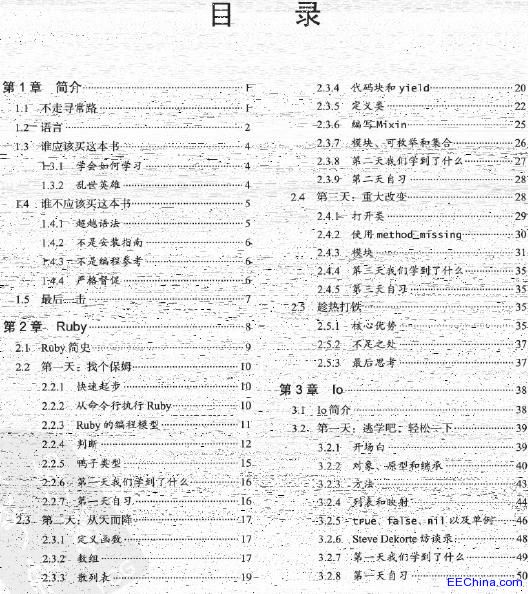 目 录
第1章 简介 1
1.1 不走寻常路 1
1.2 语言 2
1.3 谁应该买这本书 4
1.3.1 学会如何学习 4
1.3.2 乱世英雄 4
1.4 谁不应该买这本书 5
1.4.1 超越语法 5
1.4.2 不是安装指南 6
1.4.3 不是编程参考 6
1.4.4 严格督促 6
1.5 最后一击 7
第2章 Ruby 8
2.1 Ruby简史 9
2.2 第一天：找个保姆 10
2.2.1 快速起步 10
2.2.2 从命令行执行Ruby 10
2.2.3 Ruby的编程模型 11
2.2.4 判断 12
2.2.5 鸭子类型 15
2.2.6 第一天我们学到了什么 16
2.2.7 第一天自习 16
2.3 第二天：从天而降 17
2.3.1 定义函数 17
2.3.2 数组 17
2.3.3 散列表 19
2.3.4 代码块和yield 20
2.3.5 定义类 22
2.3.6 编写Mixin 25
2.3.7 模块、可枚举和集合 26
2.3.8 第二天我们学到了什么 27
2.3.9 第二天自习 28
2.4 第三天：重大改变 28
2.4.1 打开类 29
2.4.2 使用method_missing 30
2.4.3 模块 31
2.4.4 第三天我们学到了什么 35
2.4.5 第三天自习 35
2.5 趁热打铁 35
2.5.1 核心优势 35
2.5.2 不足之处 37
2.5.3 最后思考 37
第3章 Io 38
3.1 Io简介 38
3.2 第一天：逃学吧，轻松一下 39
3.2.1 开场白 39
3.2.2 对象、原型和继承 40
3.2.3 方法 43
3.2.4 列表和映射 44
3.2.5 true、false、nil以及单例 46
3.2.6 Steve Dekorte访谈录 48
3.2.7 第一天我们学到了什么 49
3.2.8 第一天自习 50
EEChina.com